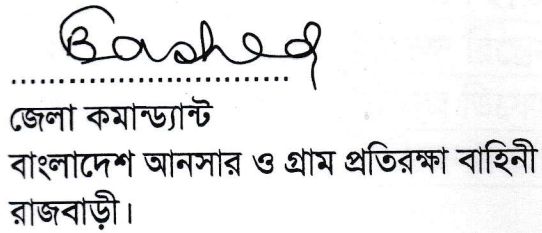 Bashed
....................................
জেলা কমান্ড্যান্ট
বাংলাদেশ আনসার ও গ্রাম প্রতিরক্ষা বাহিনী
রাজবাড়ী।